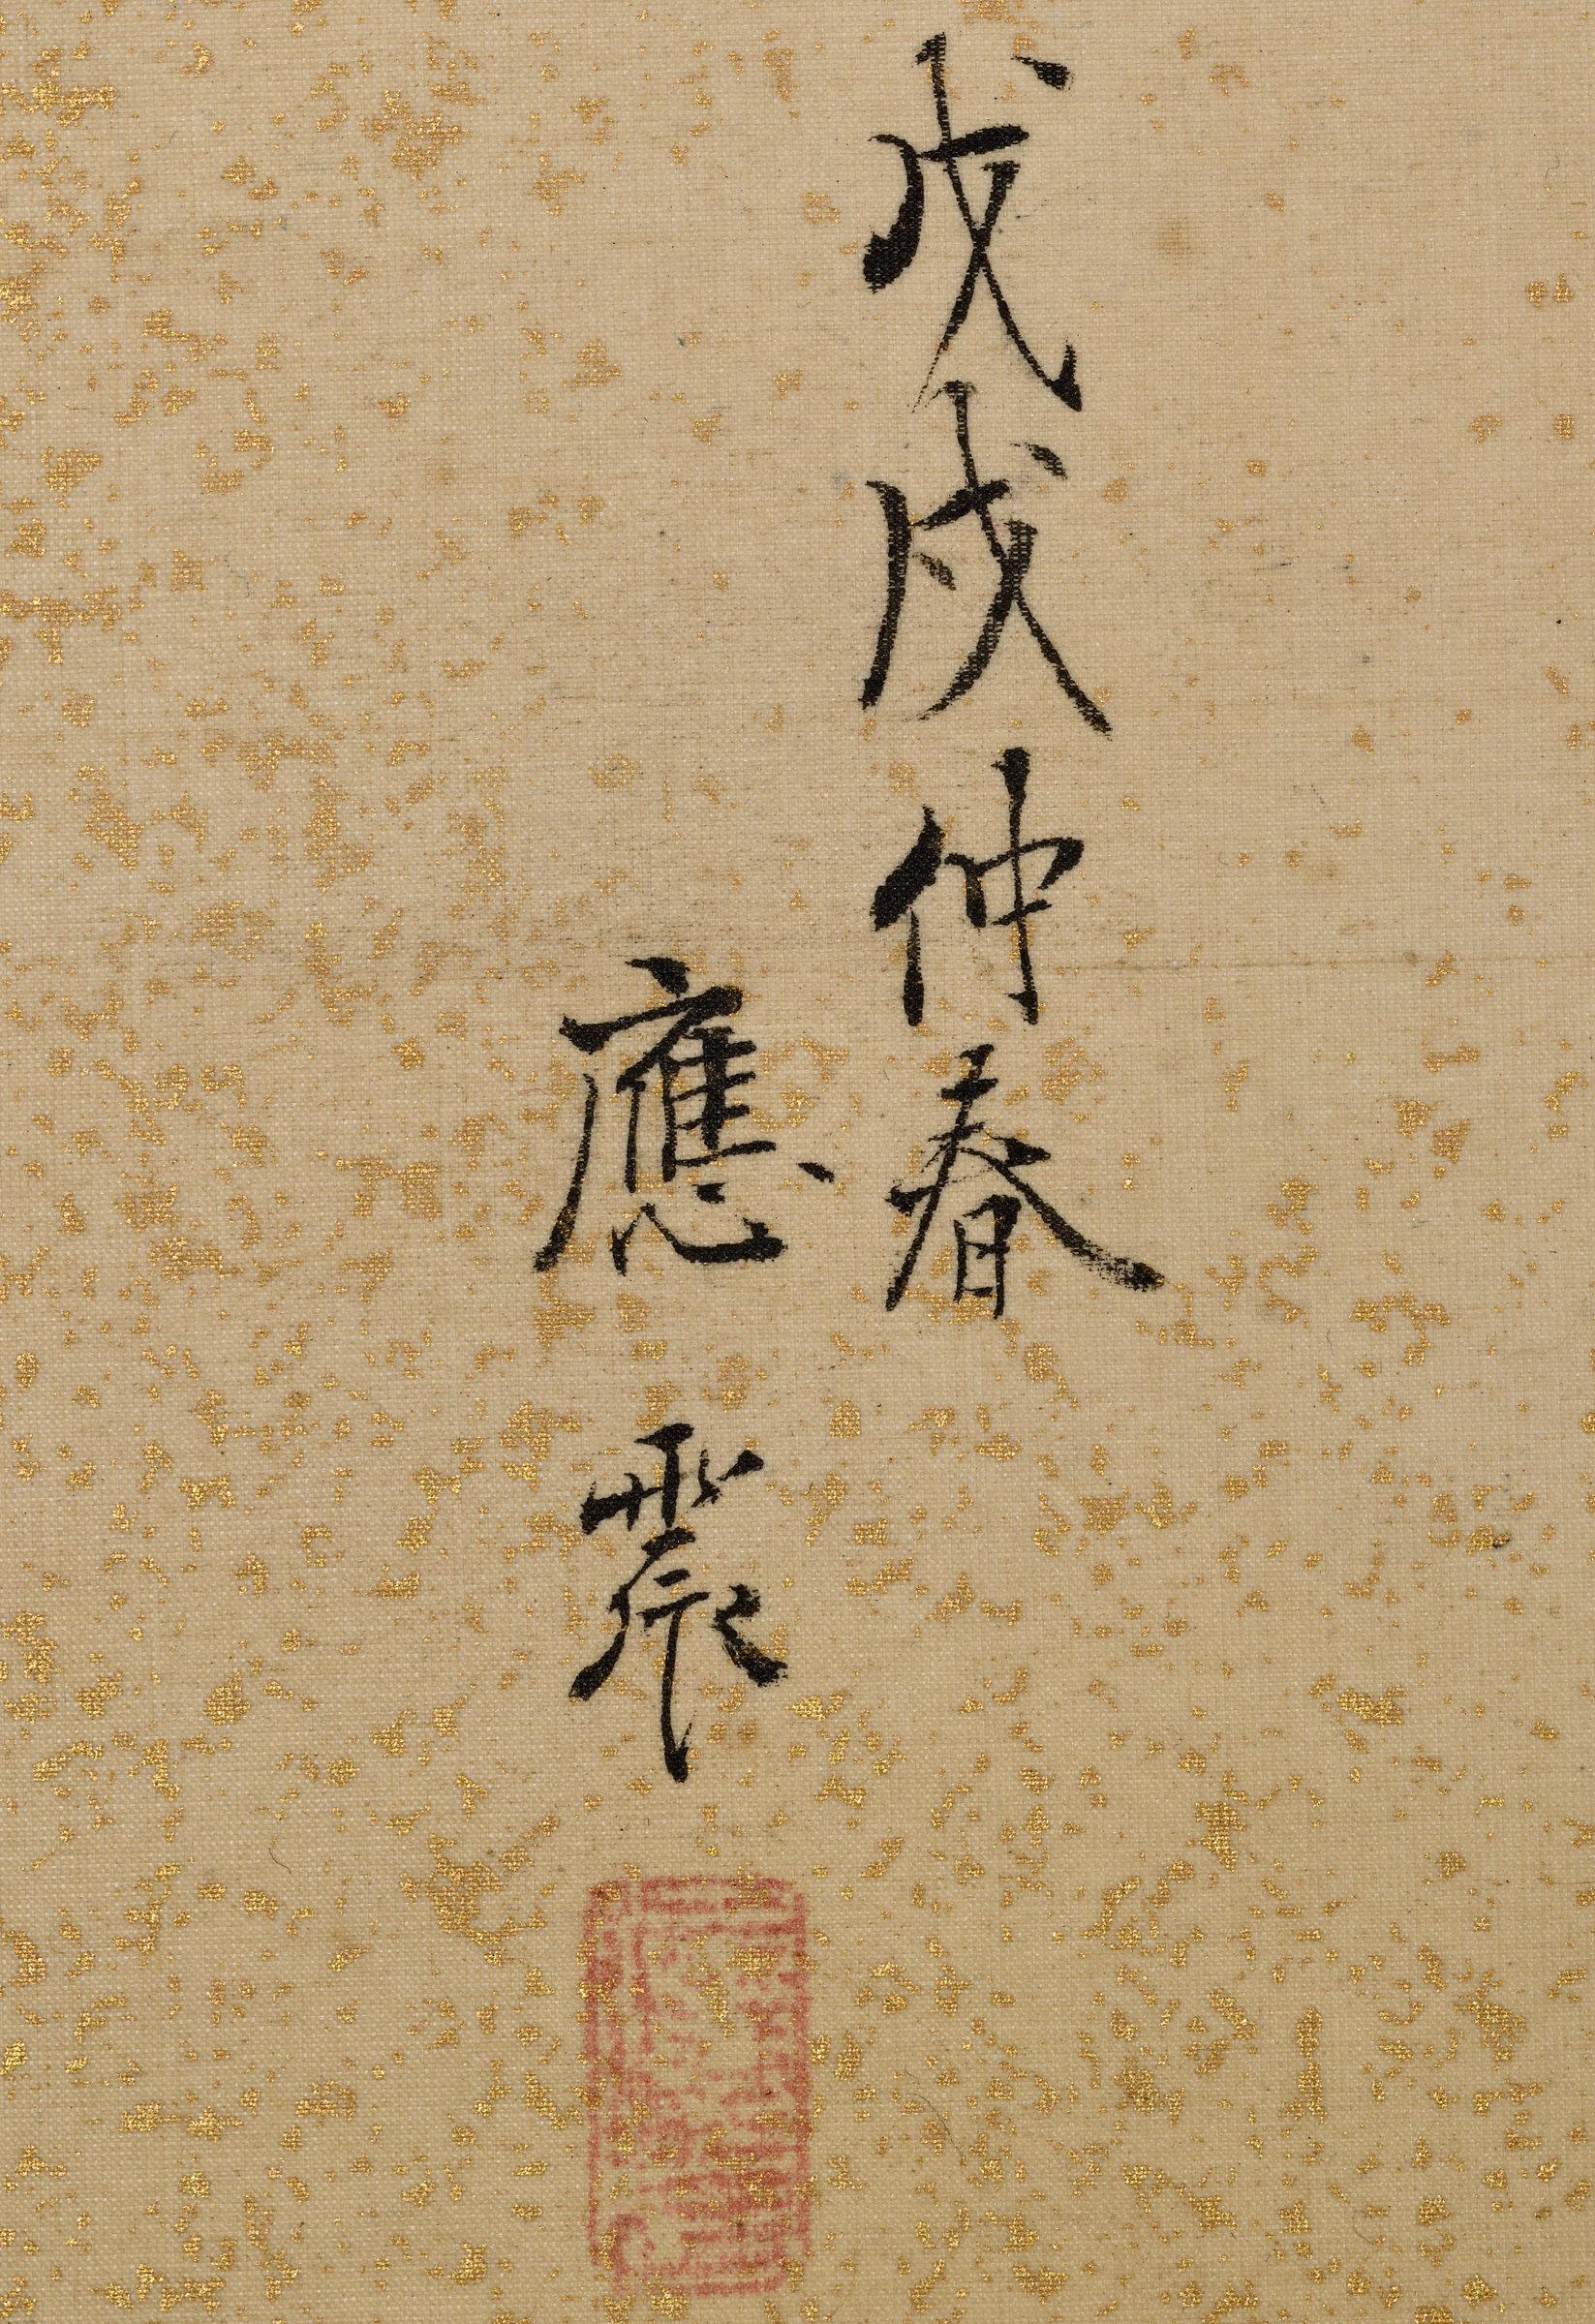 戊戌仲春
應震